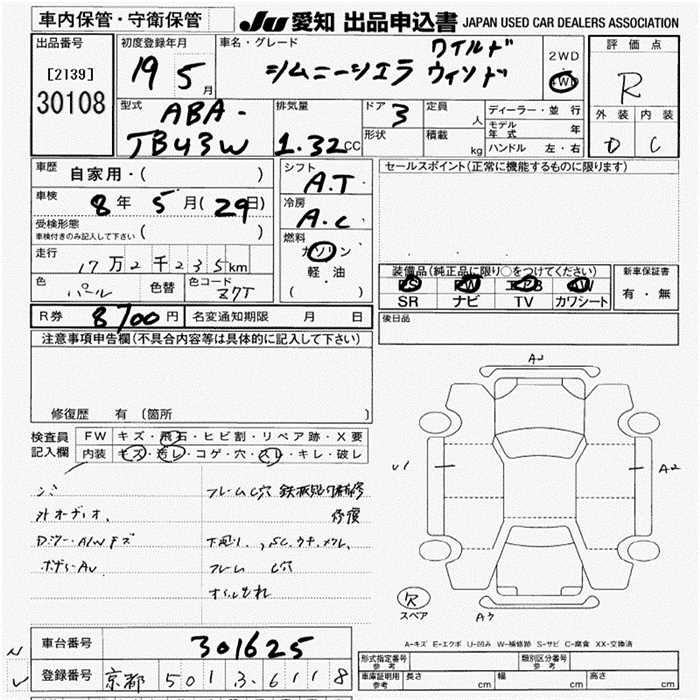 車内保管・守衛保管
JU 愛知 出品申込書 JAPAN USED CAR DEALERS ASSOCIATION
出品番号
[2139]
30108
初度登録年月
19 5月
車名・グレード
シムニーシエラ ワイルドウィンド
2WD
4WD
評価点
R
外装 内装
D C
型式
ABA-
JB43W
排気量
1.32cc
ドア 3
形状
定員 人
積載 kg
ディーラー・並行
モデル年式 年
ハンドル 左・右
車歴
自家用・( )
車検
8年 5月(29日)
受検形態
車検付きのみ記入して下さい ( )
走行
17万2千235km
色 パール 色替 色コード Z7T
シフト
A.T
冷房
A.C
燃料
ガソリン
軽油
( )
セールスポイント(正常に機能するものに限ります)
装備品(純正品に限り○をつけてください)
PS PW エアB AW
SR ナビ TV カワシート
新車保証書
有・無
R券 8700円 名変通知期限 月 日
後日品
注意事項申告欄(不具合内容等は具体的に記入して下さい)
修復歴 有 (箇所 )
検査員記入欄
FW キズ・飛石・ヒビ割・リペア跡・X要
内装 キズ・汚レ・コゲ・穴・スレ・キレ・破レ
フレームC穴
修復
外オーディオ
フレーム C穴
オイルもれ
A2
U1
A2
A3
スペア
A-キズ E-エクボ U-凹み W-補修跡 S-サビ C-腐食 XX-交換済
車台番号 301625
登録番号 京都 501 3-6118
形式指定番号 参考
類別区分番号 参考
車庫証明用 参考 長さ cm 幅 cm 高さ cm